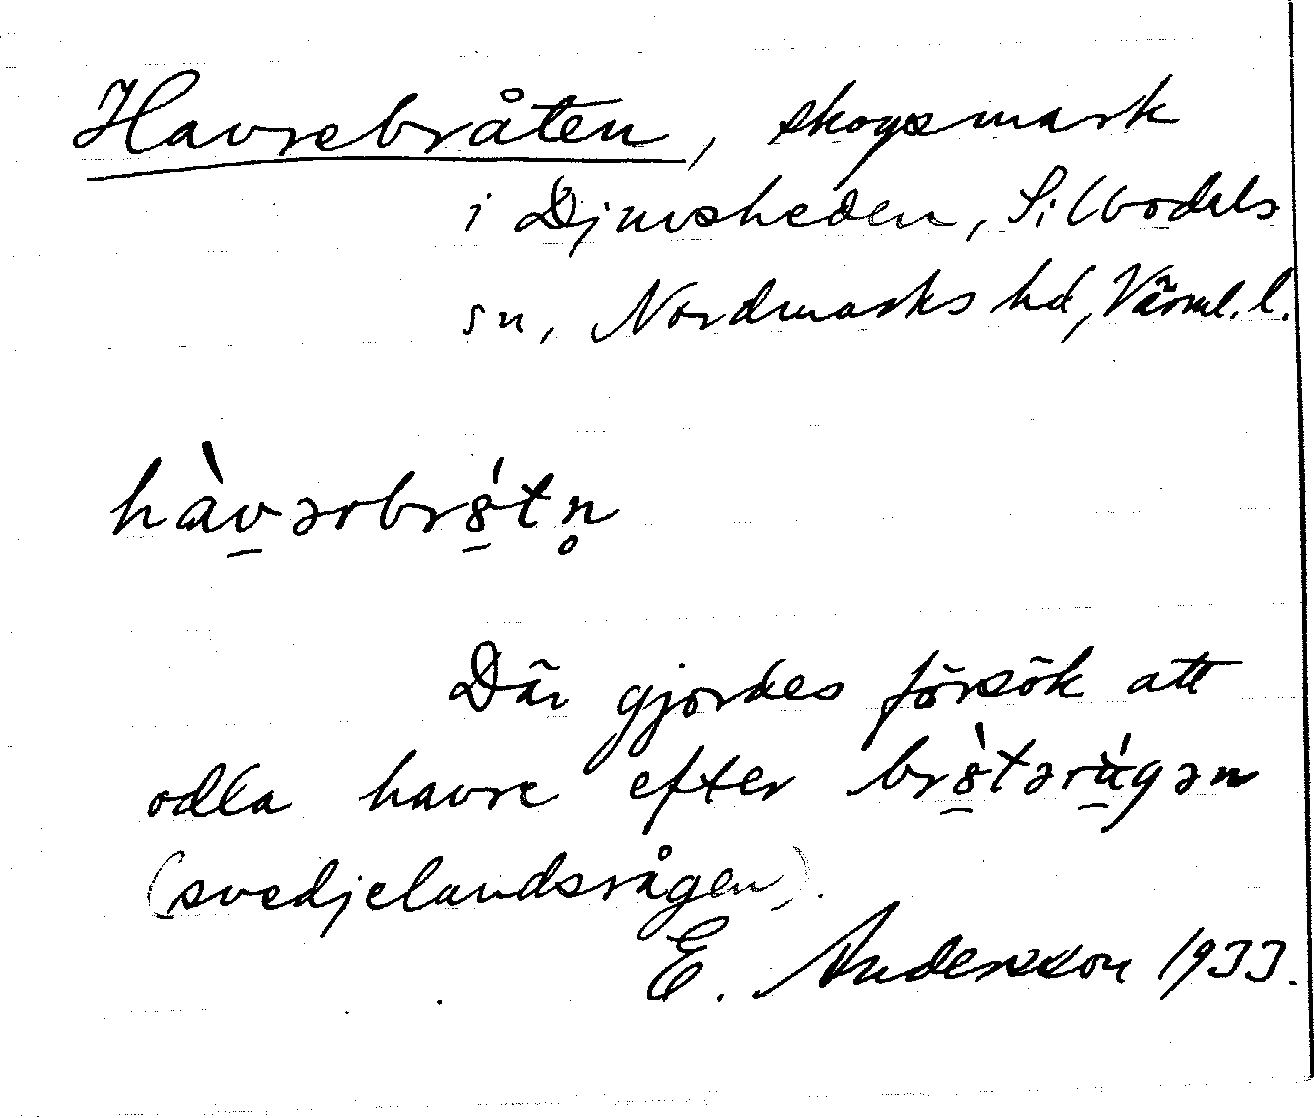 Havrebråten, skogsmark
i Djuvsheden, Silbodals
sn, Nordmarks hd, Värml. l.
hàv̠ərobr8̠́tn̥
Där gjordes försök att
odla havre efter br8̠̀tərú̠gən
(svedjelandsrågen).
E. Andersson 1933.